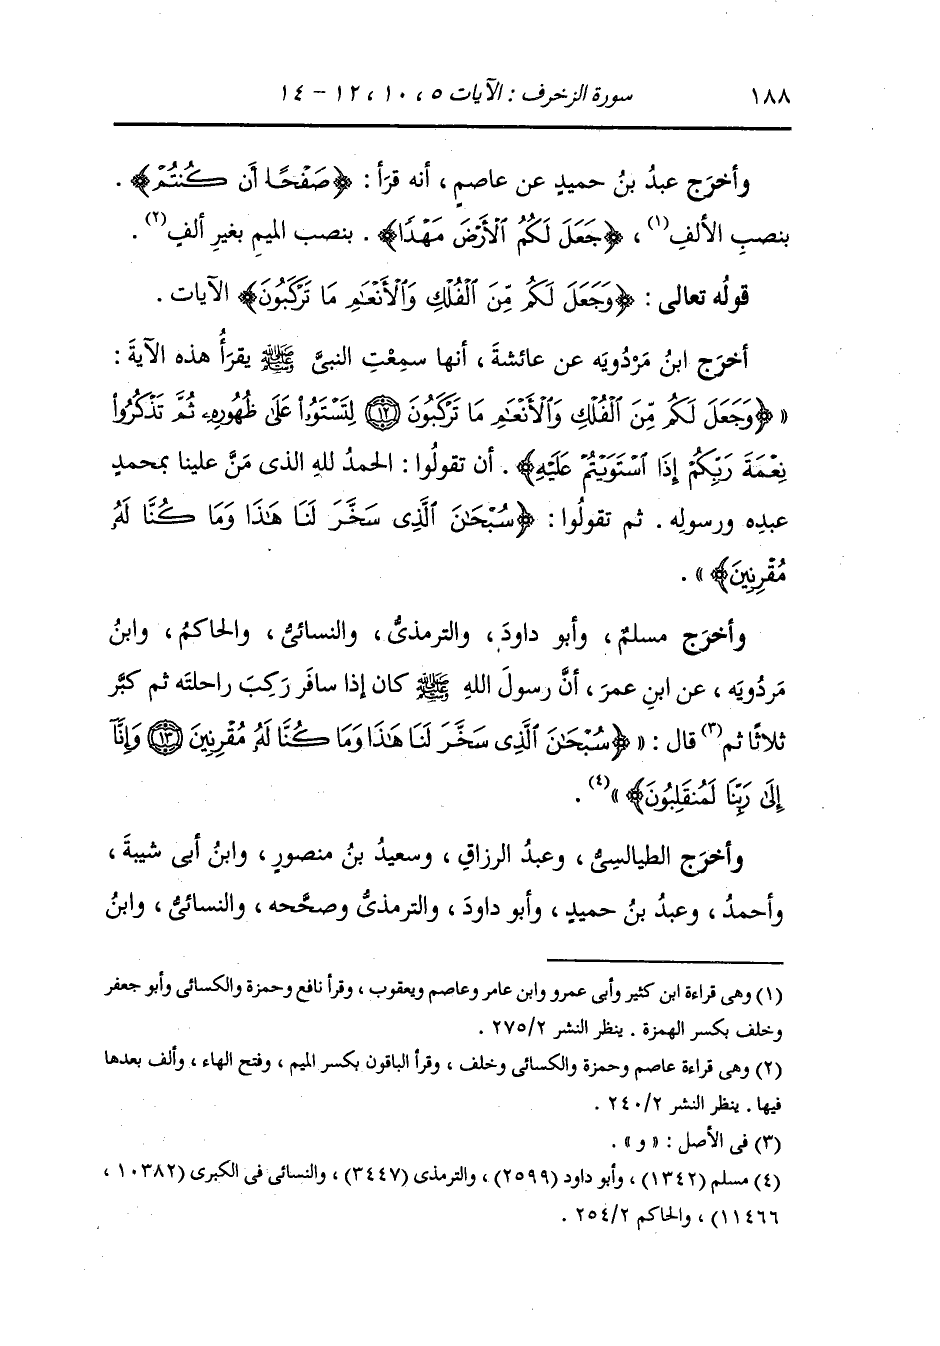 ١٨٨ سورة الزخرف : الآيات ٥ ، ١٠ ، ١٢ - ١٤
وأخرَج عبدُ بنُ حميدٍ عن عاصمٍ ، أنه قرَأ : ﴿صَفْحًا أَن كُنتُمْ﴾ .
بنصبِ الألفِ(١) ، ﴿جَعَلَ لَكُمُ ٱلْأَرْضَ مَهْدًا﴾ . بنصب الميمِ بغيرِ ألفٍ(٢) .
قولُه تعالى : ﴿وَجَعَلَ لَكُم مِّنَ ٱلْفُلْكِ وَٱلْأَنْعَٰمِ مَا تَرْكَبُونَ﴾ الآيات .
أخرَج ابنُ مَرْدُويَه عن عائشةَ ، أنها سمِعْتِ النبىَّ ﷺ يقرَأُ هذه الآيةَ :
« ﴿وَجَعَلَ لَكُم مِّنَ ٱلْفُلْكِ وَٱلْأَنْعَٰمِ مَا تَرْكَبُونَ ﴿١٢﴾ لِتَسْتَوُۥا عَلَىٰ ظُهُورِهِۦ ثُمَّ تَذْكُرُوا۟
نِعْمَةَ رَبِّكُمْ إِذَا ٱسْتَوَيْتُمْ عَلَيْهِ﴾ . أن تقولُوا : الحمدُ للهِ الذى مَنَّ علينا بمحمدٍ
عبدِه ورسولِه . ثم تقولُوا : ﴿سُبْحَٰنَ ٱلَّذِى سَخَّرَ لَنَا هَٰذَا وَمَا كُنَّا لَهُۥ
مُقْرِنِينَ﴾ » .
وأخرَج مسلمٌ ، وأبو داودَ ، والترمذىُّ ، والنسائىُّ ، والحاكمُ ، وابنُ
مَردُويَه ، عن ابنِ عمرَ ، أنَّ رسولَ اللهِ ﷺ كان إذا سافَر رَكِبَ راحلتَه ثم كبَّر
ثلاثًا ثم(٣) قال : « ﴿سُبْحَٰنَ ٱلَّذِى سَخَّرَ لَنَا هَٰذَا وَمَا كُنَّا لَهُۥ مُقْرِنِينَ ﴿١٣﴾ وَإِنَّآ
إِلَىٰ رَبِّنَا لَمُنقَلِبُونَ﴾ »(٤) .
وأخرَج الطيالسِىُّ ، وعبدُ الرزاقِ ، وسعيدُ بنُ منصورٍ ، وابنُ أبى شيبةَ ،
وأحمدُ ، وعبدُ بنُ حميدٍ ، وأبو داودَ ، والترمذىُّ وصحَّحه ، والنسائىُّ ، وابنُ
(١) وهى قراءة ابن كثير وأبى عمرو وابن عامر وعاصم ويعقوب ، وقرأ نافع وحمزة والكسائى وأبو جعفر
وخلف بكسر الهمزة . ينظر النشر ٢٧٥/٢ .
(٢) وهى قراءة عاصم وحمزة والكسائى وخلف ، وقرأ الباقون بكسر الميم ، وفتح الهاء ، وألف بعدها
فيها . ينظر النشر ٢٤٠/٢ .
(٣) فى الأصل : « و » .
(٤) مسلم (١٣٤٢) ، وأبو داود (٢٥٩٩) ، والترمذى (٣٤٤٧) ، والنسائى فى الكبرى (١٠٣٨٢ ،
١١٤٦٦) ، والحاكم ٢٥٤/٢ .